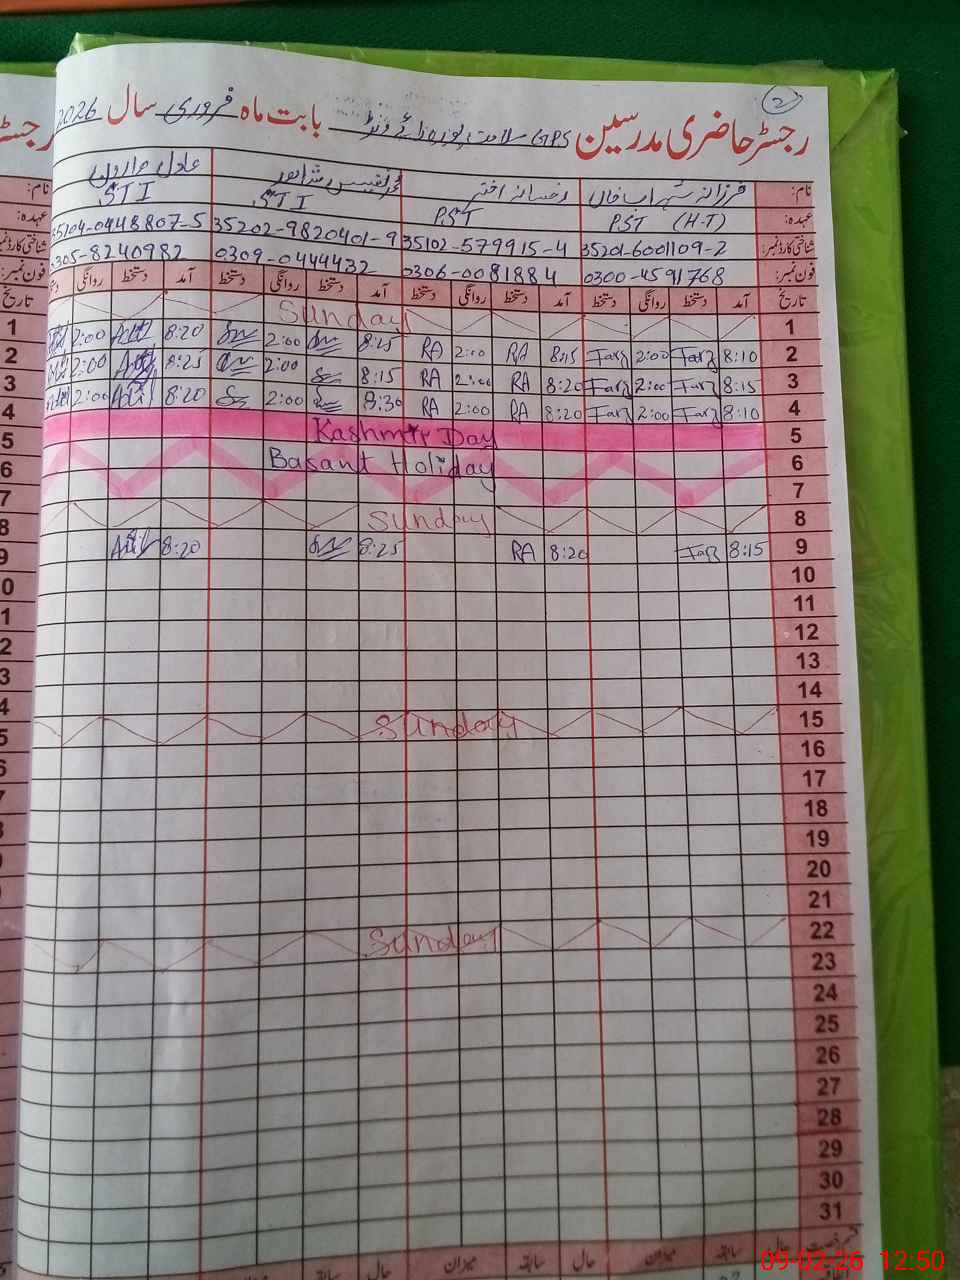 2
رجسٹر حاضری مدرسین GPS سلامت پورہ رائے ونڈ بابت ماہ فروری سال 2026
نام: فرزانہ سہراب خاں رخسانہ اختر عادل ہارون
عہدہ: PST (H-T) PST STI STI
شناختی کارڈ نمبر: 35201-6001109-2 35102-579915-4 35202-9820401-9 35104-0448807-5
فون نمبر: 0300-4591768 0306-0081884 0309-0444432 0305-8240982
تاریخ آمد دستخط روانگی دستخط آمد دستخط روانگی دستخط آمد دستخط روانگی دستخط آمد دستخط روانگی
1 Sunday
2 8:10 Farz 2:00 Farz 8:15 RA 2:00 RA 8:25 2:00 8:20 2:00
3 8:15 Farz 2:00 Farz 8:20 RA 2:00 RA 8:15 2:00 8:25 2:00
4 8:10 Farz 2:00 Farz 8:20 RA 2:00 RA 8:30 2:00 8:20 2:00
5 Kashmir Day
6 Basant Holiday
7
8 Sunday
9 8:15 Farz 8:20 RA 8:25 8:20
10
11
12
13
14
15 Sunday
16
17
18
19
20
21
22 Sunday
23
24
25
26
27
28
29
30
31
حال سابقہ میزان حال سابقہ میزان حال سابقہ
09-02-26 12:50